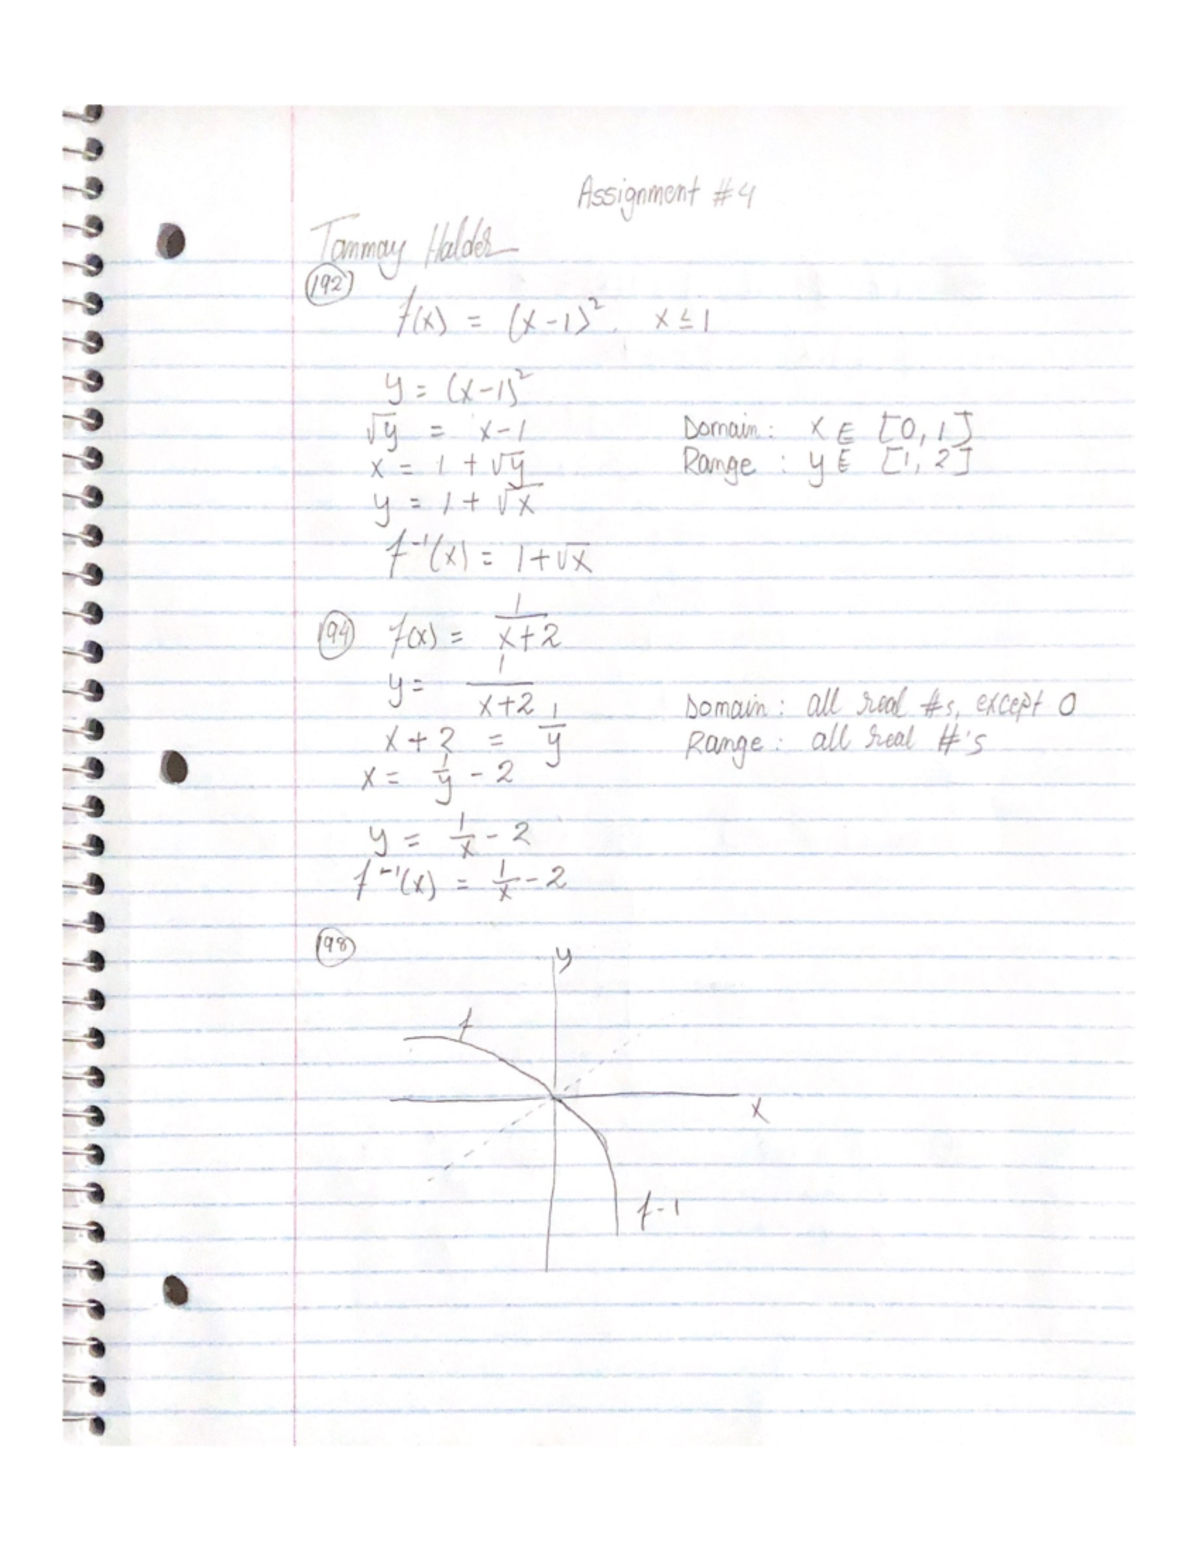 Assignment #4
Tanmay Halder
192)
f(x) = (x-1)², x ≤ 1
y = (x-1)²
√y = x-1
x = 1 + √y
y = 1 + √x
f⁻¹(x) = 1+√x
Domain: x ∈ [0, 1]
Range : y ∈ [1, 2]
194 f(x) = 1/(x+2)
y = 1/(x+2)
x + 2 = 1/y
x = 1/y - 2
y = 1/x - 2
f⁻¹(x) = 1/x - 2
Domain: all real #s, except 0
Range: all real #'s
198
y
f
x
f-1